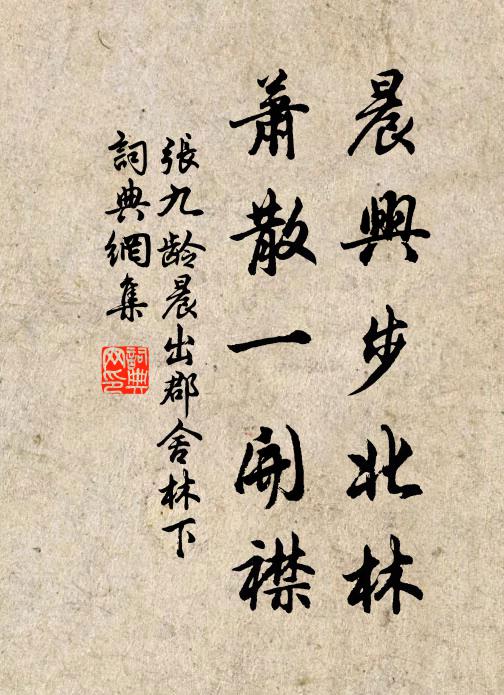 晨興步北林
蕭散一開襟
張九龄晨出郡舍林下
詞典網集
詞典网印